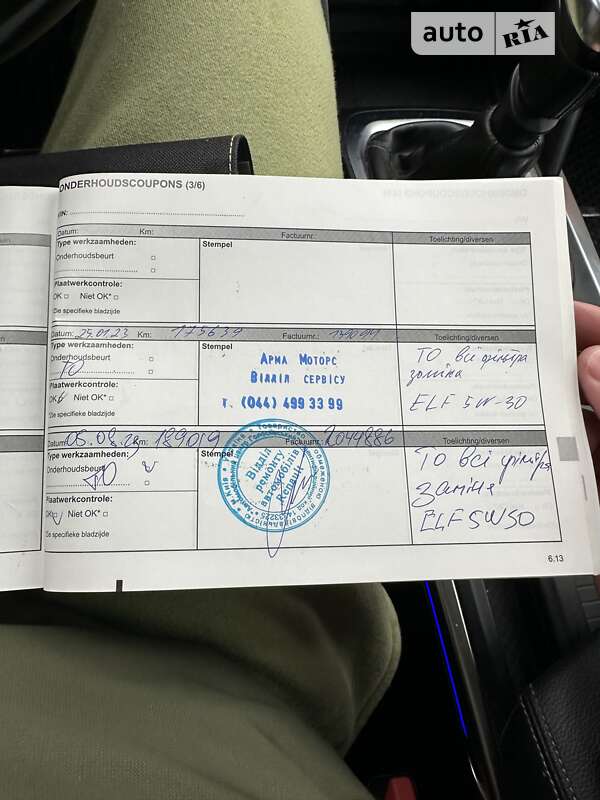 auto RIA
ONDERHOUDSCOUPONS (3/6)
VIN:
Datum: Km: Factuurnr.: Toelichting/diversen
Type werkzaamheden: Stempel
Onderhoudsbeurt
Plaatwerkcontrole:
OK Niet OK*
*Zie specifieke bladzijde
Datum: 25.01.23 Km: 175639 Factuurnr.: Toelichting/diversen
Type werkzaamheden: Stempel
Onderhoudsbeurt
ТО
Plaatwerkcontrole:
OK Niet OK*
*Zie specifieke bladzijde
Арма Моторс
Відділ сервісу
т. (044) 499 33 99
ТО всі фільтра
заміна
ELF 5W-30
05.08.23 Km: 189019 2044886 Toelichting/diversen
Type werkzaamheden: Stempel
Onderhoudsbeurt
ТО
Plaatwerkcontrole:
OK Niet OK*
*Zie specifieke bladzijde
Відділ
ремонту
автомобілів
Renault
ТО всі фільтра
заміна
ELF 5W50
6.13